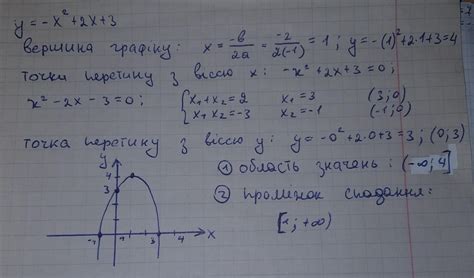 y = -x² + 2x + 3
вершина графіку: x = -b/2a = -2/2(-1) = 1; y = -(1)² + 2·1 + 3 = 4
точки перетину з віссю x: -x² + 2x + 3 = 0;
x² - 2x - 3 = 0; { x₁ + x₂ = 2 x₁ = 3 (3; 0)
x₁ × x₂ = -3 x₂ = -1 (-1; 0)
точка перетину з віссю y: y = -0² + 2·0 + 3 = 3; (0; 3)
① область значень: (-∞; 4]
② проміжок спадання:
[1; +∞)
y
4
3
-1 3 4 x